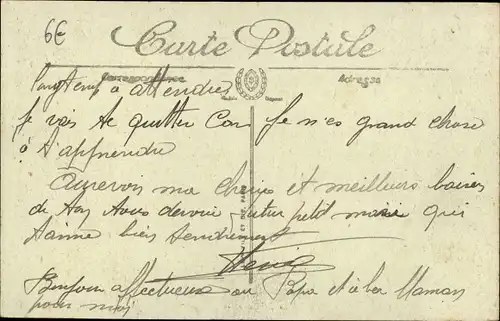 6€
Carte Postale
Correspondance Adresse
longtemps à attendre
je vais te quitter Car Je n'es grand chose
à t'apprendre
Aurevoir ma cherie et meilleurs baisers
de ton futur petit marie qui
t'aime bien tendrement
Bonjour affectueux au Papa et à la Maman
pour moi